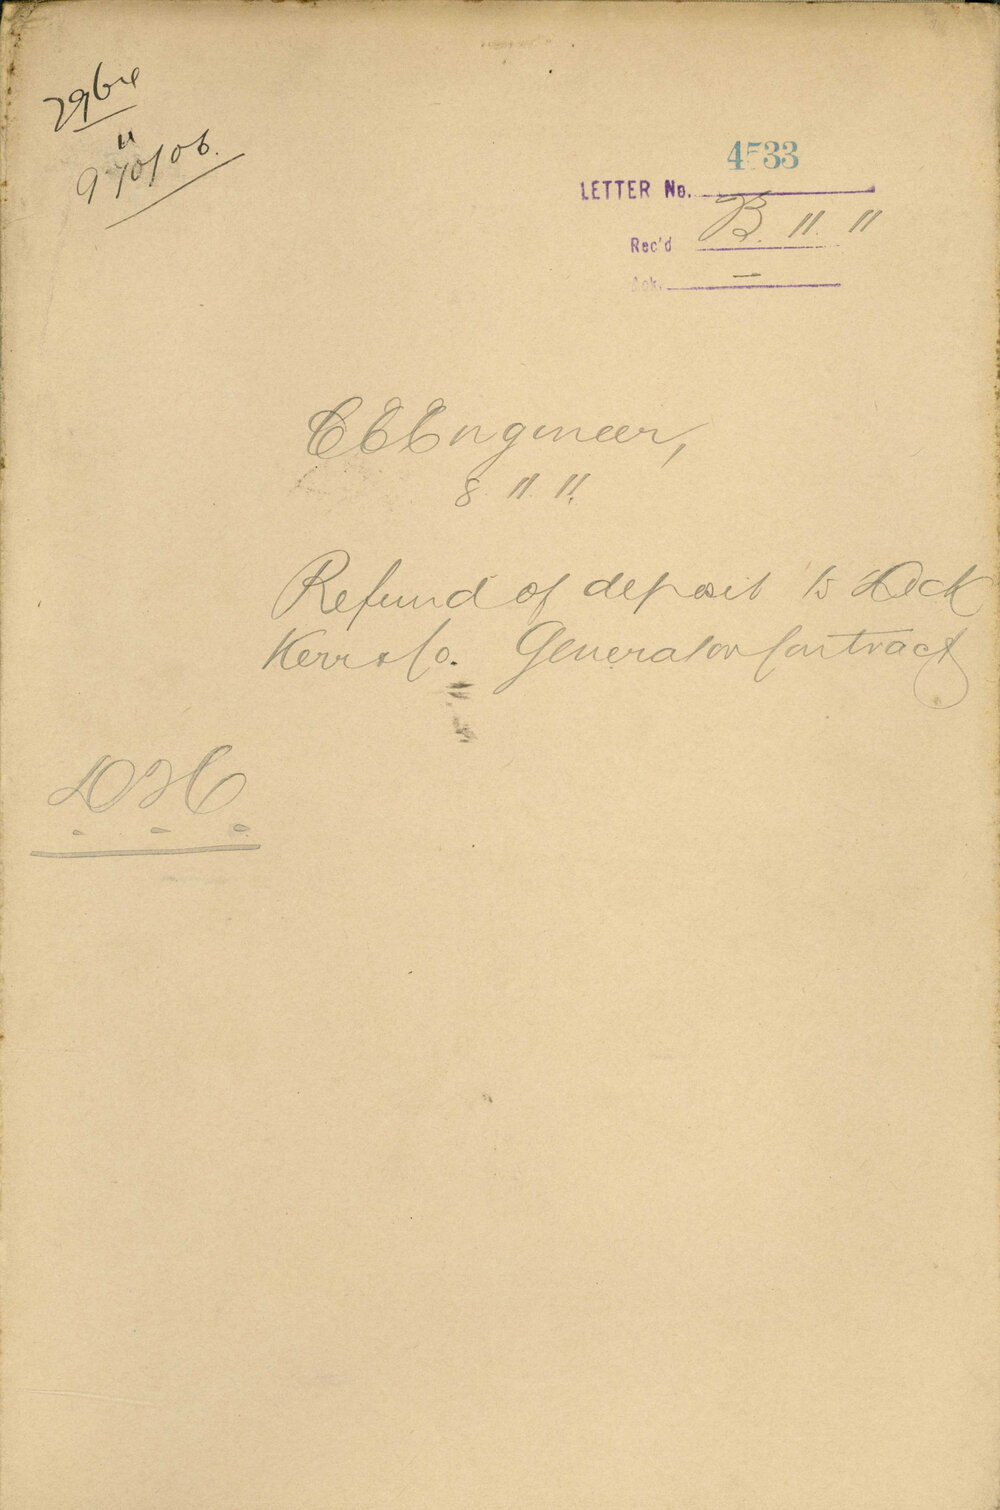 4533
LETTER No.
Rec'd B. 11. 11
Ack. —
C C Engineer,
8. 11. 11.
Refund of deposit to Dick
Kerr & Co. Generator Contract